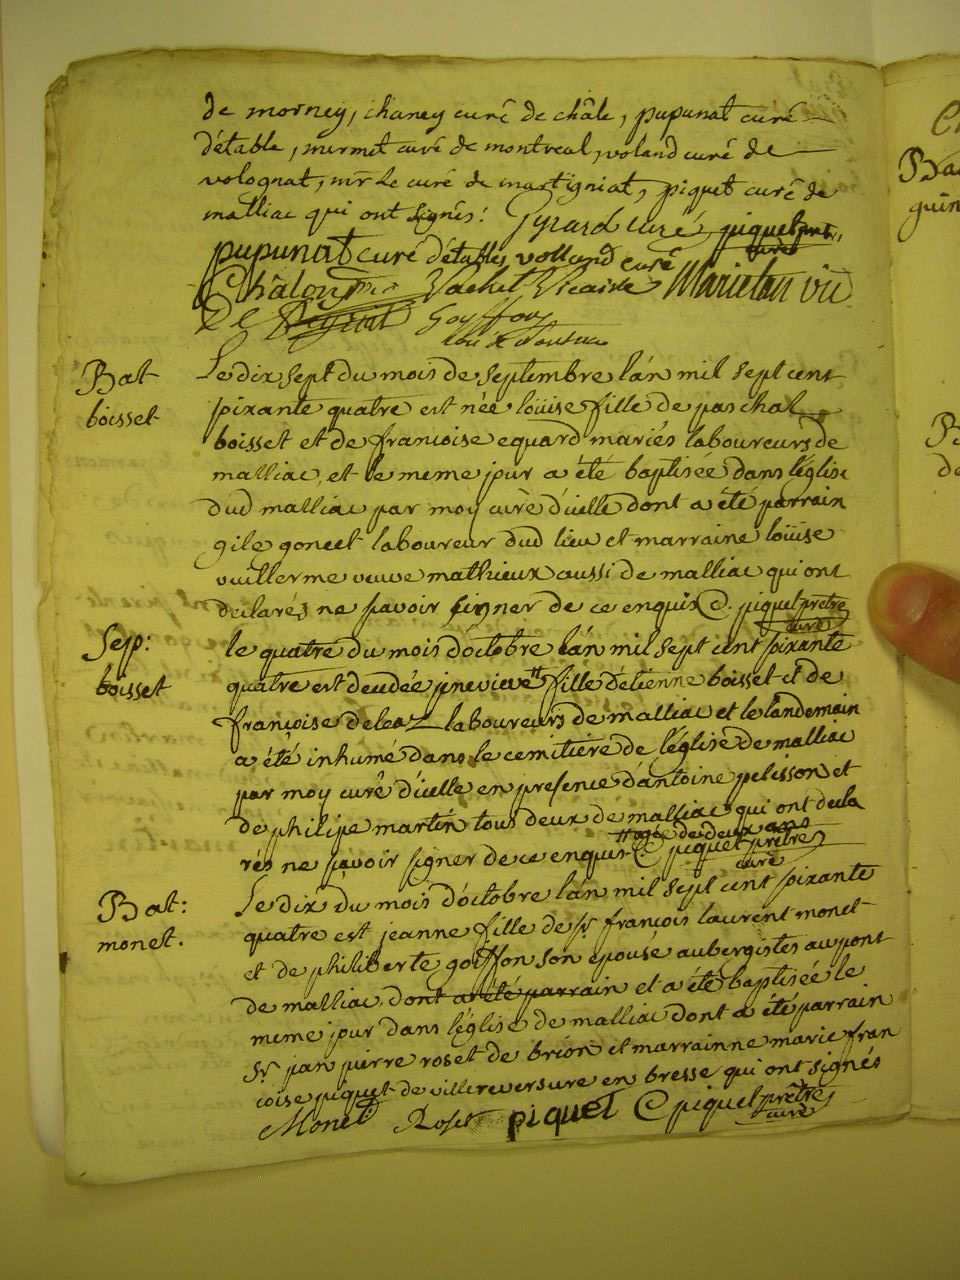 de morney, chaney curé de châle, pupunat curé
d'étable, mermet curé de montreal, voland curé de
volognat, mr le curé de martigniat, piquet curé de
malliac qui ont signés! Gyrard curé piquet ptre,
curé
pupunat curé d'étables volland curé
Châlon Vachet Vicaire Marietan vic
De Goyffon
Bat
boisset
Le dix sept du mois de septembre lan mil sept cent
soixante quatre est née loüise fille de paschal
boisset et de francoise equard mariés laboureurs de
malliac, et le meme jour a été baptisée dans l'église
dud malliac par moy curé d'icelle dont a été parrain
gile gonnet laboureur dud lieu et marraine loüise
vuillerme veuve mathieux aussi de malliac qui ont
declarés ne savoir signer de ce enquis C. piquet prêtre
curé
Sep:
boisset
le quatre du mois d'octobre lân mil sept cent soixante
quatre est decedée jenevieve tt fille d'étienne boisset et de
françoise deleaz laboureurs de malliac et le landemain
a été inhumé dans le cemitière de l'église de malliac
par moy curé d'icelle en presence d'antoine pelisson et
de philipe martin tous deux de malliac qui ont decla
rés ne savoir signer de ce enquis C piquet prêtre
tt agée de deux ans
curé
Bat:
monet.
Le dix du mois d'octobre lân mil sept cent soixante
quatre est jeanne fille de sr. françois laurent monet
et de philiberte goiffon son epouse aubergistes au pont
de malliac, dont a été parrain et a été baptisée le
meme jour dans l'église de malliac dont a été parrain
Sr. jean pierre roset de brion et marrainne marie fran
coise piquet de villereversure en bresse qui ont signés
Monet Roset piquet C piquet prêtre
curé